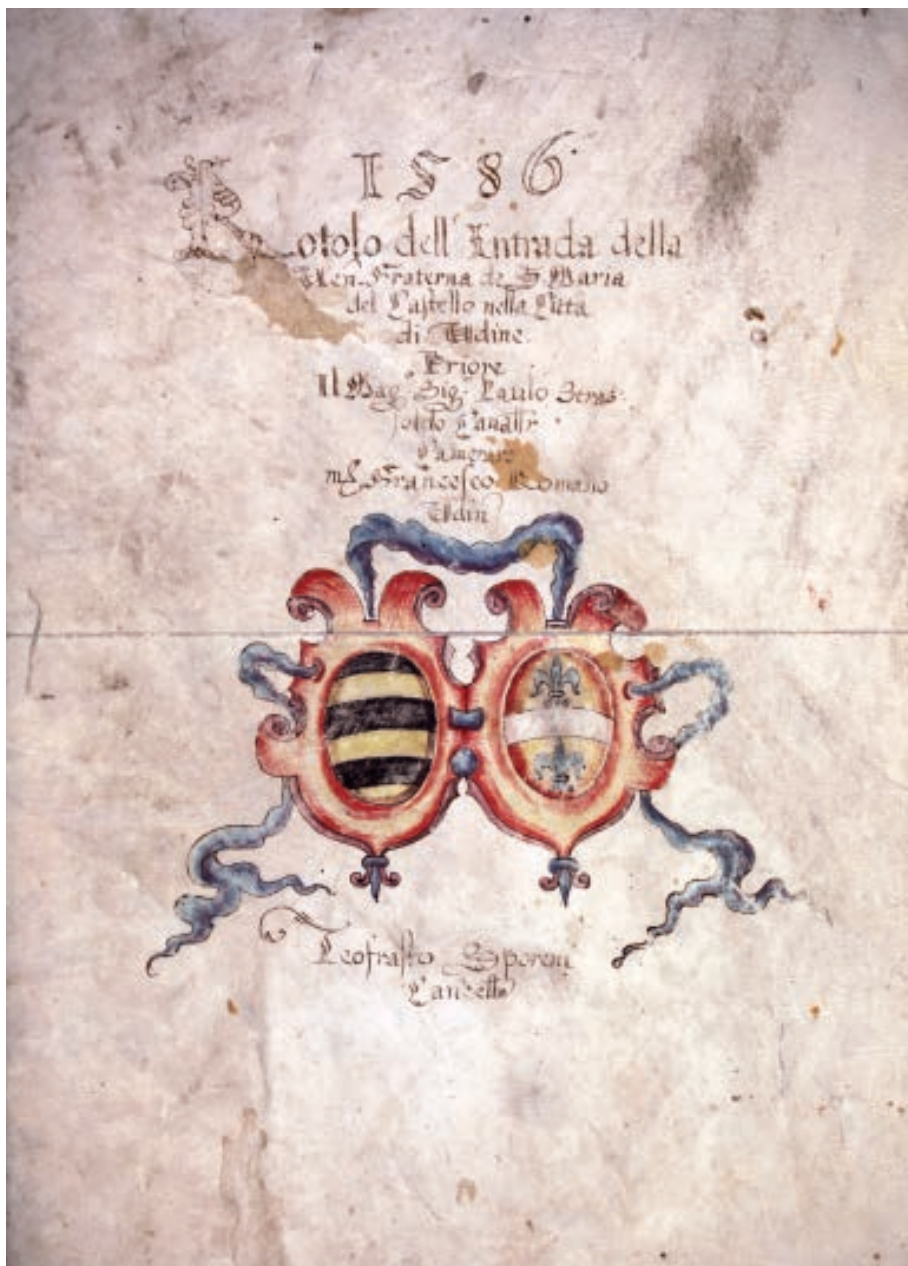 1586
Rotolo dell' Entrada della
Ven. Fraterna de S Maria
del Castello nella Citta
di Udine.
Priore
Il Mag. Sig. Paulo Stras
soldo Cavallr
Cameraro
ms Francesco
Udin
Teofrasto Sporeni
Cancello